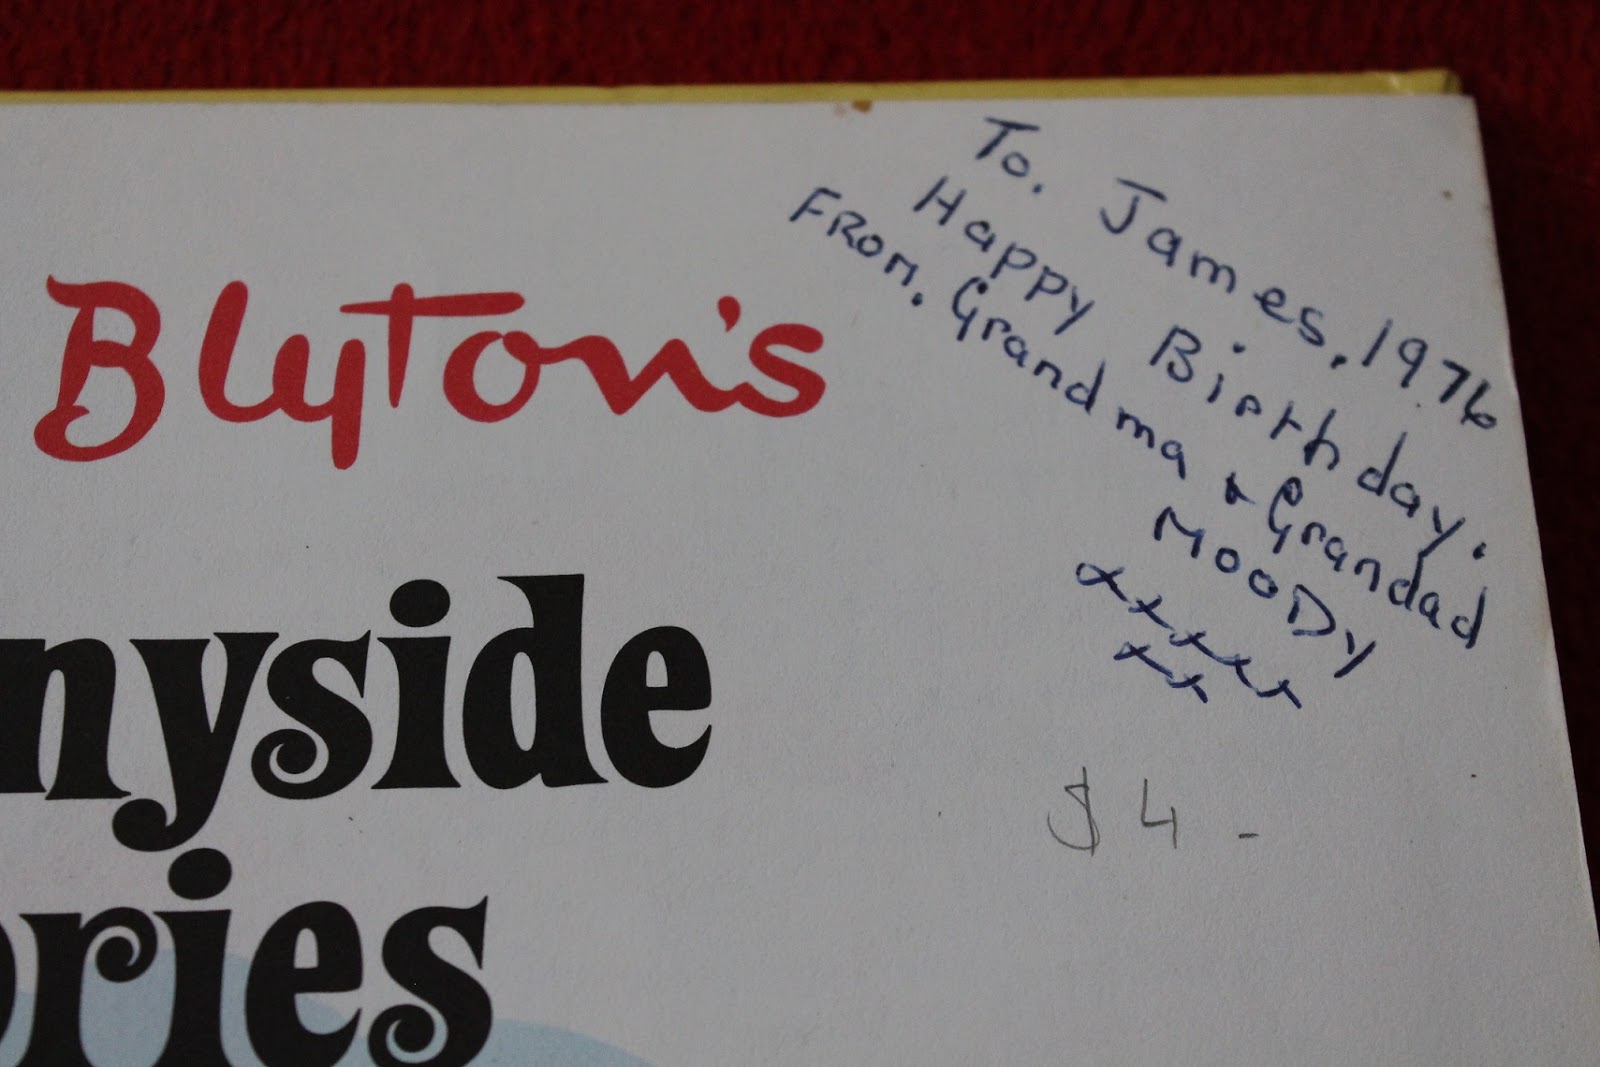 Blyton's
nyside
ories
To. James, 1976
Happy Birthday.
FROM. Grandma & Grandad
MOODY
xxxxx
xx
$4-